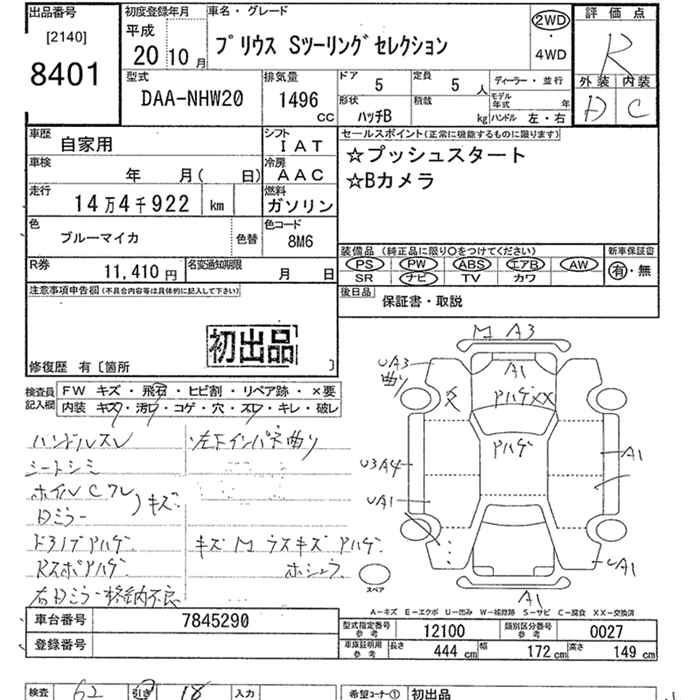 出品番号
[2140]
8401
初度登録年月
平成
20 10 月
車名・グレード
プリウス Sツーリングセレクション
2WD
・
4WD
評価点
R
外装 内装
D C
型式
DAA-NHW20
排気量
1496 cc
ドア 5
定員 5 人
ディーラー・並行
形状 ハッチB
積載 kg
モデル年式 年
ハンドル 左・右
車歴
自家用
シフト
IAT
車検 年 月( 日)
冷房
AAC
走行
14万4千922 km
燃料
ガソリン
色
ブルーマイカ
色替
色コード
8M6
R券
11,410 円
名変通知期限
月 日
セールスポイント(正常に機能するものに限ります)
☆プッシュスタート
☆Bカメラ
装備品(純正品に限り○をつけてください)
新車保証書
PS PW ABS エアB AW
SR ナビ TV カワ
有・無
後日品
保証書・取説
注意事項申告欄(不具合内容等は具体的に記入して下さい)
初出品
修復歴 有〔箇所 〕
検査員記入欄
FW キズ・飛石・ヒビ割・リペア跡・×要
内装 キズ・汚レ・コゲ・穴・スレ・キレ・破レ
ハンドルスレ
左下インパネ曲り
シートシミ
ホイルCワレ
Dミラー
キズ
ドアノブアハゲ
キズ M ラスキズ アハゲ
Rスポアハゲ
ホシュウ
右Dミラー格納不良
M A3
UA3
曲り
A1
アハゲXX
アハゲ
U3A4
UA1
A1
UA1
A1
スペア
A-キズ E-エクボ U-凹み W-補修跡 S-サビ C-腐食 XX-交換済
車台番号
7845290
登録番号
型式指定番号
参考
12100
類別区分番号
参考
0027
車庫証明用
参考
長さ 444 cm
幅 172 cm
高さ 149 cm
検査 62
引き 18
入力
希望コーナー① 初出品